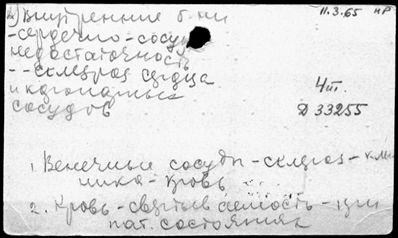 а) Внутренние б-ни
11.3.65 НР
-сердечно-сосуд
недостаточность
--склероз сердца
и коронарных
сосудов
4ш.
Д 33255
1. Венечные сосуды-склероз-кли
ника-кровь
2. Кровь-свертываемость-при
пат. состояниях